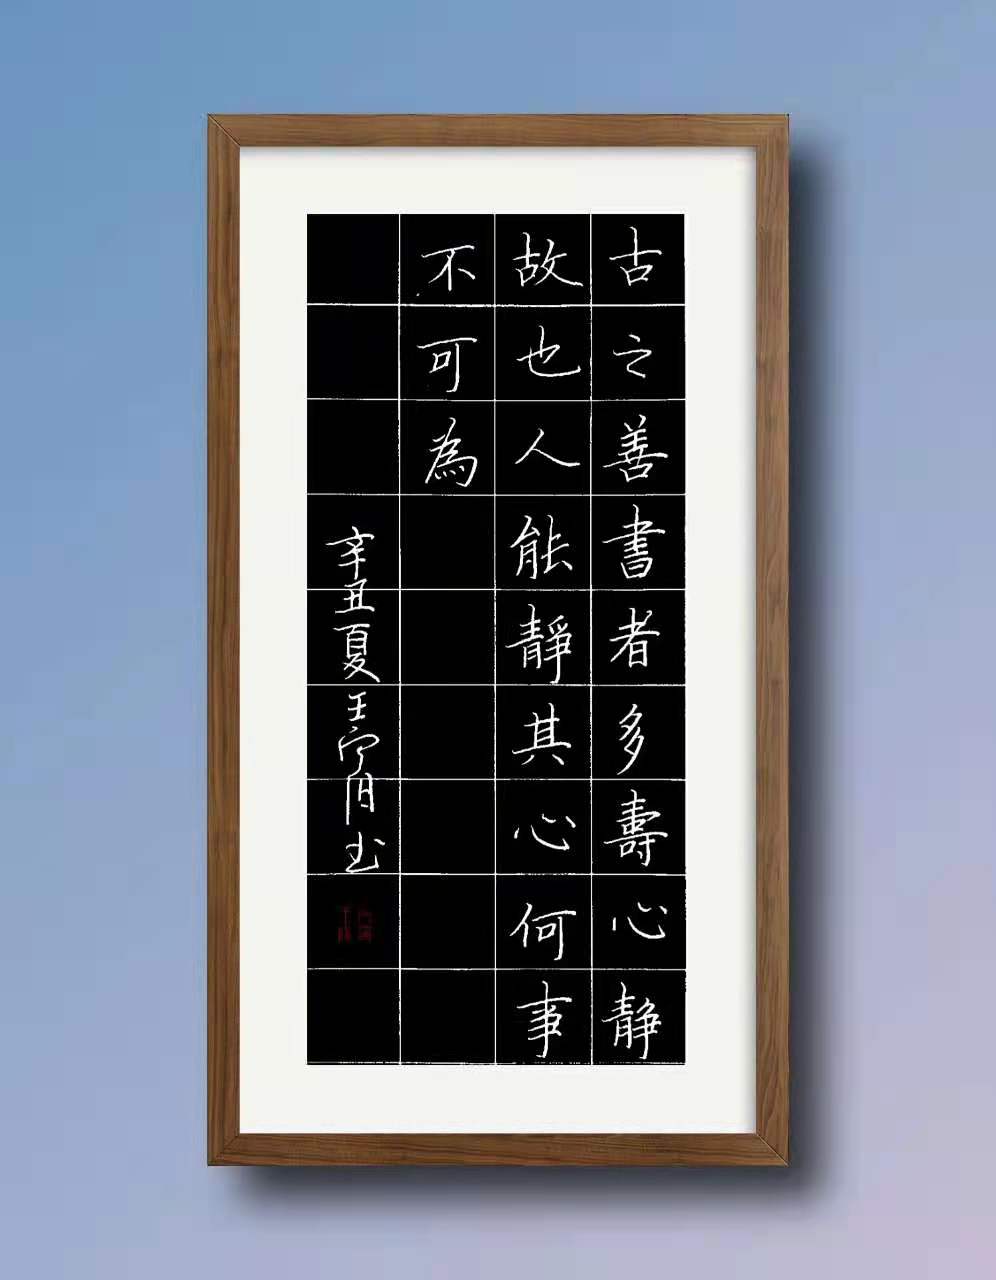 古之善書者多壽心静
故也人能靜其心何事
不可為
辛丑夏王寧月书